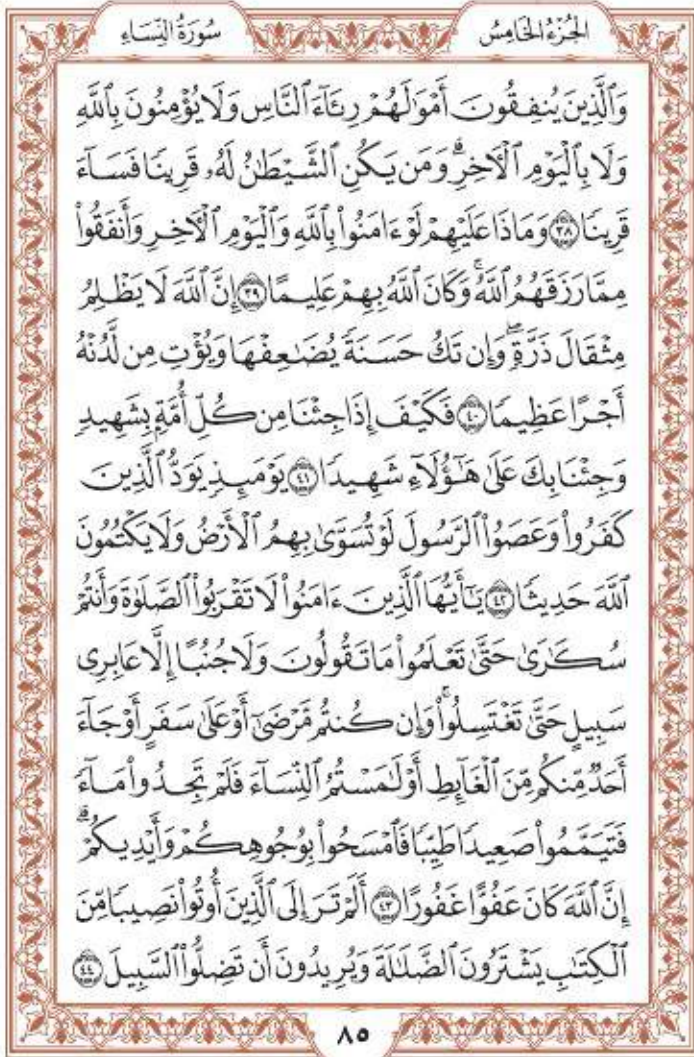 الجُزْءُ الخَامِسُ
سُورَةُ النِّسَاءِ
وَٱلَّذِينَ يُنفِقُونَ أَمۡوَٰلَهُمۡ رِئَآءَ ٱلنَّاسِ وَلَا يُؤۡمِنُونَ بِٱللَّهِ
وَلَا بِٱلۡيَوۡمِ ٱلۡأٓخِرِۗ وَمَن يَكُنِ ٱلشَّيۡطَٰنُ لَهُۥ قَرِينٗا فَسَآءَ
قَرِينٗا ۝٣٨ وَمَاذَا عَلَيۡهِمۡ لَوۡ ءَامَنُواْ بِٱللَّهِ وَٱلۡيَوۡمِ ٱلۡأٓخِرِ وَأَنفَقُواْ
مِمَّا رَزَقَهُمُ ٱللَّهُۚ وَكَانَ ٱللَّهُ بِهِمۡ عَلِيمًا ۝٣٩ إِنَّ ٱللَّهَ لَا يَظۡلِمُ
مِثۡقَالَ ذَرَّةٖۖ وَإِن تَكُ حَسَنَةٗ يُضَٰعِفۡهَا وَيُؤۡتِ مِن لَّدُنۡهُ
أَجۡرًا عَظِيمٗا ۝٤٠ فَكَيۡفَ إِذَا جِئۡنَا مِن كُلِّ أُمَّةِۭ بِشَهِيدٖ
وَجِئۡنَا بِكَ عَلَىٰ هَٰٓؤُلَآءِ شَهِيدٗا ۝٤١ يَوۡمَئِذٖ يَوَدُّ ٱلَّذِينَ
كَفَرُواْ وَعَصَوُاْ ٱلرَّسُولَ لَوۡ تُسَوَّىٰ بِهِمُ ٱلۡأَرۡضُ وَلَا يَكۡتُمُونَ
ٱللَّهَ حَدِيثٗا ۝٤٢ يَٰٓأَيُّهَا ٱلَّذِينَ ءَامَنُواْ لَا تَقۡرَبُواْ ٱلصَّلَوٰةَ وَأَنتُمۡ
سُكَٰرَىٰ حَتَّىٰ تَعۡلَمُواْ مَا تَقُولُونَ وَلَا جُنُبًا إِلَّا عَابِرِي
سَبِيلٍ حَتَّىٰ تَغۡتَسِلُواْۚ وَإِن كُنتُم مَّرۡضَىٰٓ أَوۡ عَلَىٰ سَفَرٍ أَوۡ جَآءَ
أَحَدٞ مِّنكُم مِّنَ ٱلۡغَآئِطِ أَوۡ لَٰمَسۡتُمُ ٱلنِّسَآءَ فَلَمۡ تَجِدُواْ مَآءٗ
فَتَيَمَّمُواْ صَعِيدٗا طَيِّبٗا فَٱمۡسَحُواْ بِوُجُوهِكُمۡ وَأَيۡدِيكُمۡۗ
إِنَّ ٱللَّهَ كَانَ عَفُوًّا غَفُورًا ۝٤٣ أَلَمۡ تَرَ إِلَى ٱلَّذِينَ أُوتُواْ نَصِيبٗا مِّنَ
ٱلۡكِتَٰبِ يَشۡتَرُونَ ٱلضَّلَٰلَةَ وَيُرِيدُونَ أَن تَضِلُّواْ ٱلسَّبِيلَ ۝٤٤
٨٥